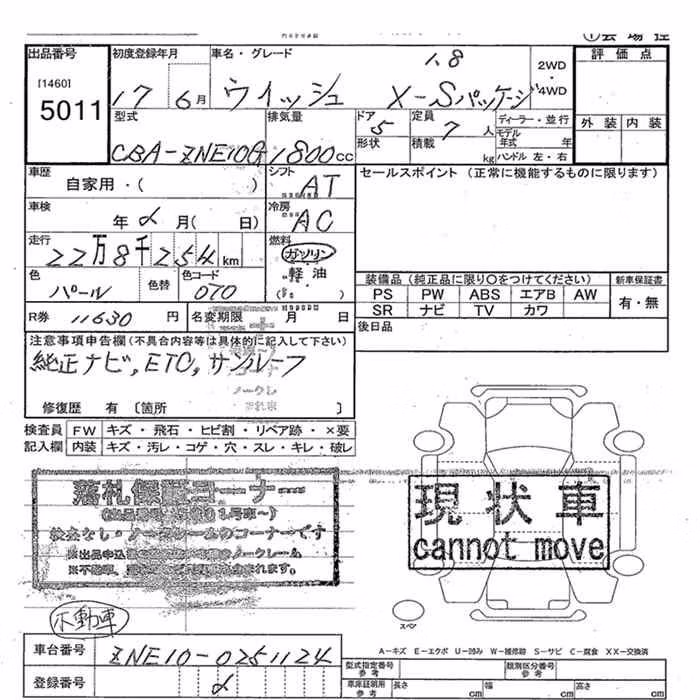 ①会場控
出品番号 初度登録年月 車名・グレード 評価点
[1460]
5011
17 6月 ウィッシュ 1.8 X-Sパッケージ 2WD・4WD
型式 排気量 ドア 定員 ディーラー・並行 外装 内装
CBA-ZNE10G 1800cc 5 7人 モデル年式 年
形状 積載 kg ハンドル 左・右
車歴 シフト セールスポイント(正常に機能するものに限ります)
自家用・( ) AT
車検 冷房
年 月( 日) AC
走行 燃料
22万8千254km ガソリン
色 色替 色コード 軽油 装備品(純正品に限り○をつけてください) 新車保証書
パール 070 ( ) PS PW ABS エアB AW 有・無
SR ナビ TV カワ
R券 11630円 名変期限 月 日 後日品
注意事項申告欄(不具合内容等は具体的に記入して下さい)
純正ナビ,ETC,サンルーフ
ノークレ
修復歴 有 〔箇所 〕
検査員 FW キズ・飛石・ヒビ割・リペア跡・×要
記入欄 内装 キズ・汚レ・コゲ・穴・スレ・キレ・破レ
落札保証コーナー
検査なし・ノークレームのコーナーです
現状車
cannot move
不動車
スペア
A-キズ E-エクボ U-凹み W-補修跡 S-サビ C-腐食 XX-交換済
車台番号 ZNE10-0251124 型式指定番号 参考 類別区分番号 参考
登録番号 車庫証明用 参考 長さ cm 幅 cm 高さ cm